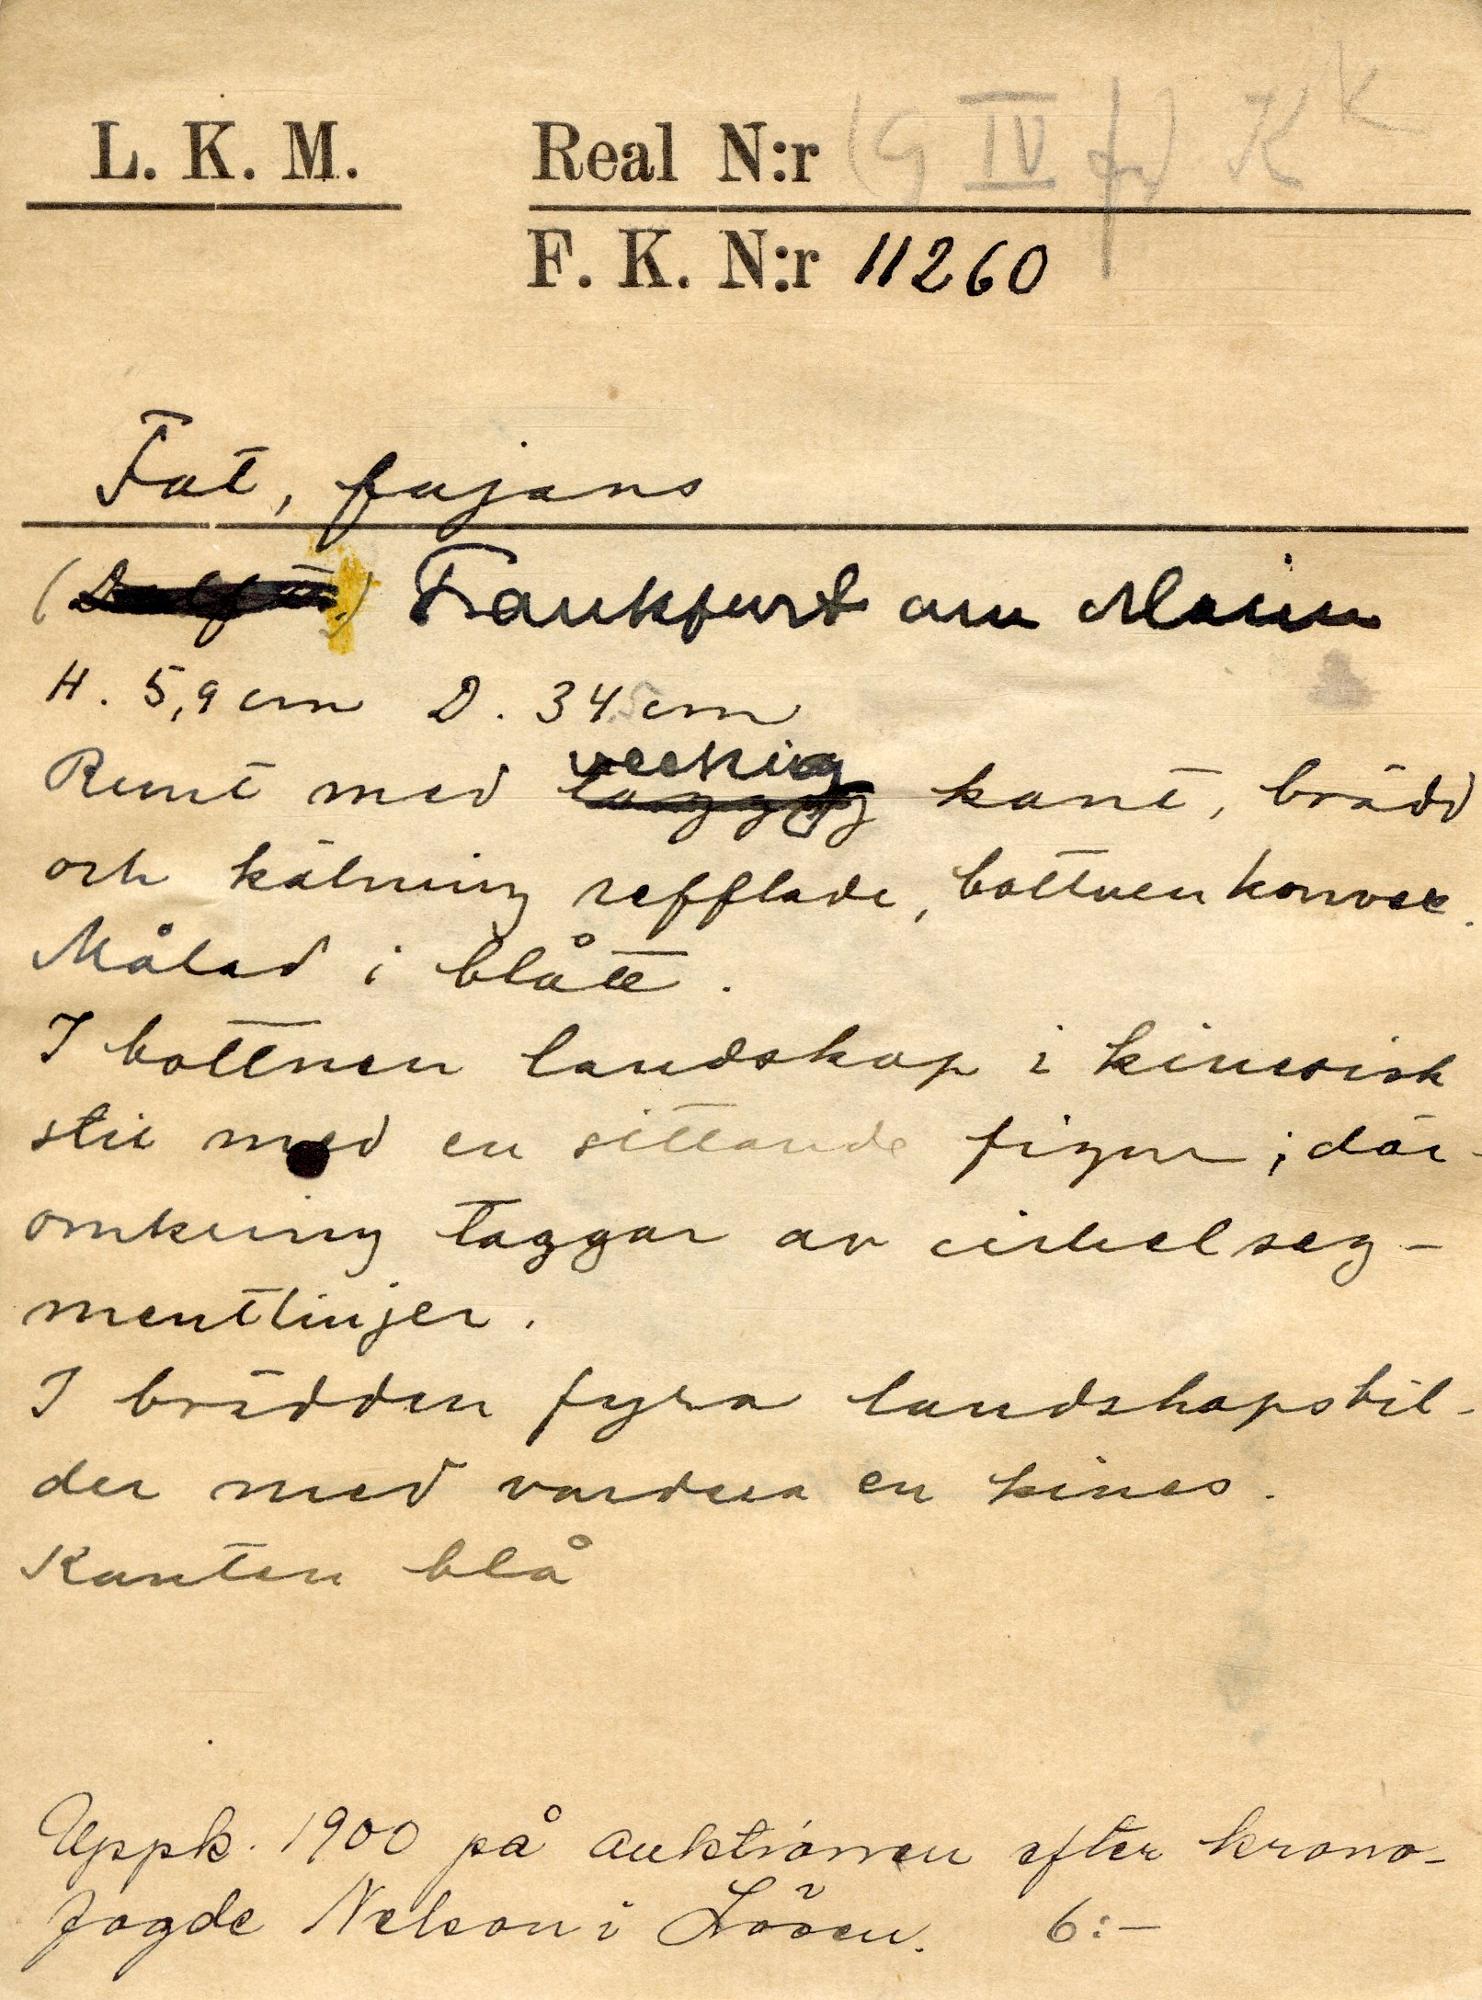 L. K. M. Real N:r (G IV f) K K
F. K. N:r 11260
Fat, fajans
( ) Frankfurt am Main
H. 5,9 cm D. 34 cm
Runt med veckig taggig kant, brädd
och kälning refflade, bottnen konvex.
Målad i blått.
I bottnen landskap i kinesisk
stil med en sittande figur; där-
omkring taggar av cirkelseg-
mentlinjer.
I brädden fyra landskapsbil-
der med vardera en kines.
Kanten blå
Uppk. 1900 på auktionen efter krono-
fogde Nelson i Lösen. 6:-